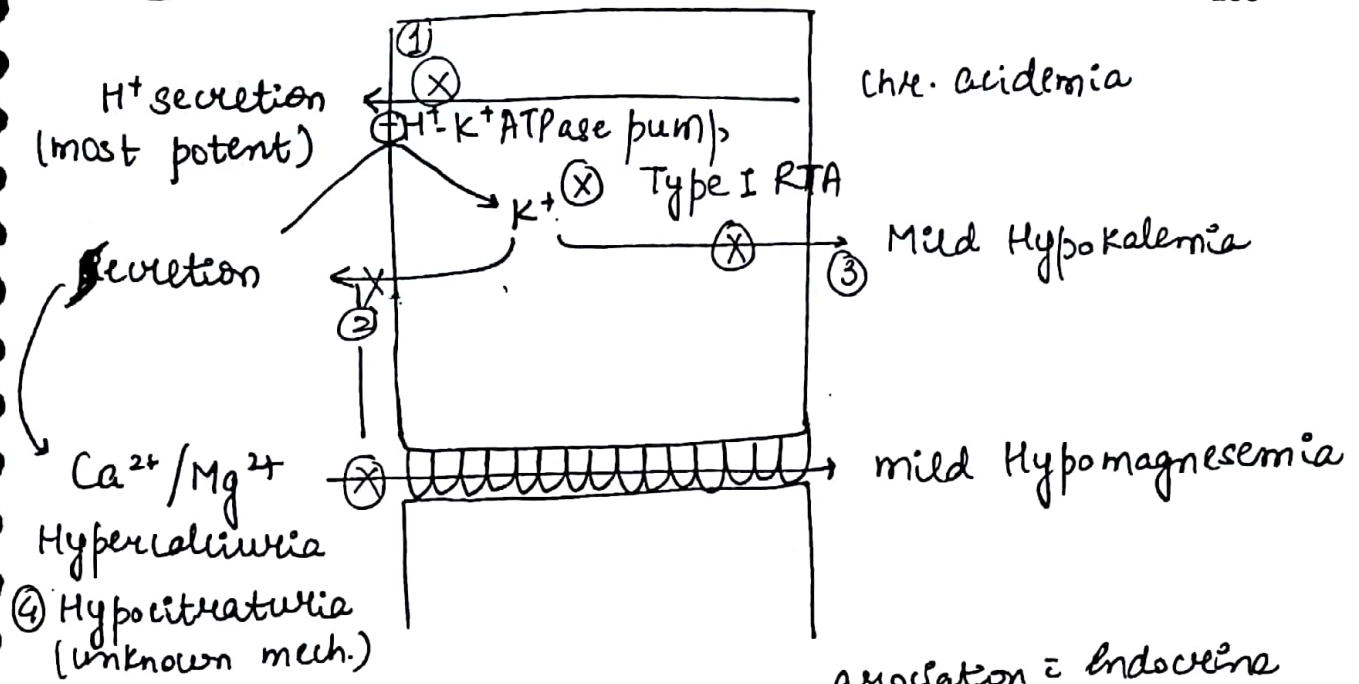 ①
H⁺ secretion
(most potent)
ⓧ
⊕ H⁺-K⁺ ATPase pump
Chr. acidemia
K⁺ ⓧ Type I RTA
ⓧ
Mild Hypokalemia
③
Secretion
X
②
Ca²⁺/Mg²⁺
ⓧ
mild Hypomagnesemia
Hypercalciuria
④ Hypocitraturia
(unknown mech.)
association c̄ Endocrine